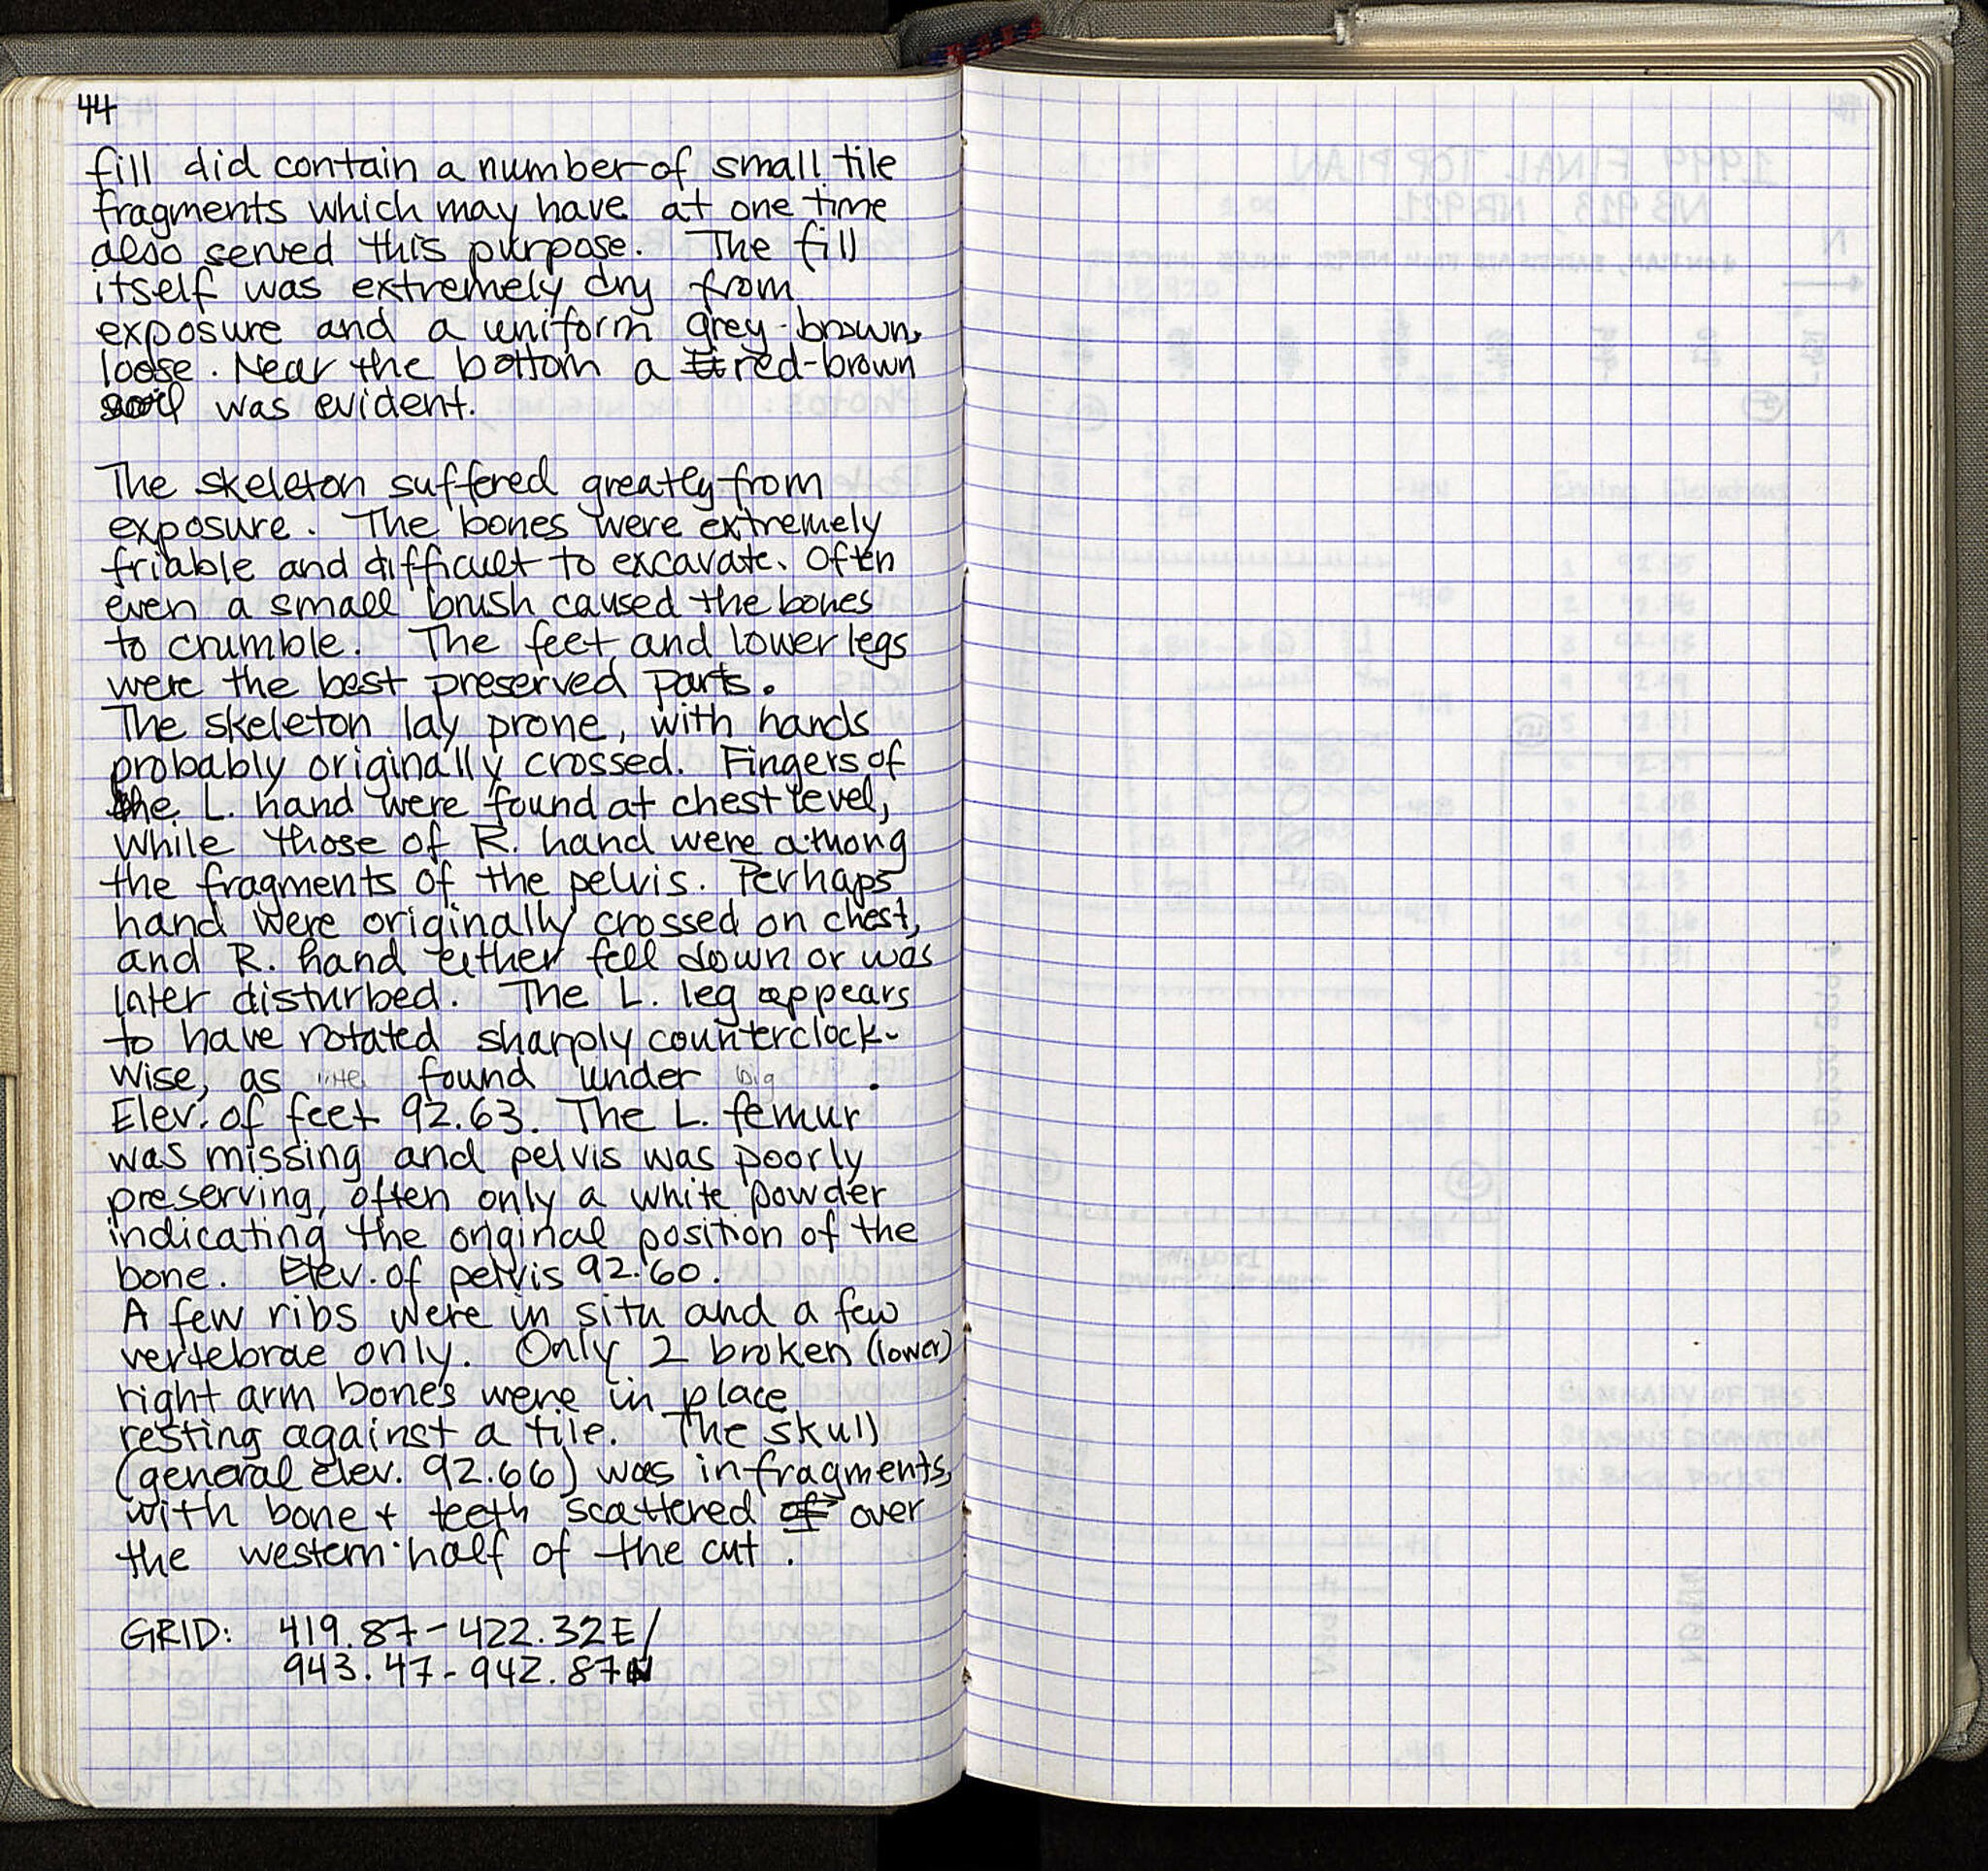 44
fill did contain a number of small tile
fragments which may have at one time
also served this purpose. The fill
itself was extremely dry from
exposure and a uniform grey-brown,
loose. Near the bottom a red-brown
soil was evident.
The skeleton suffered greatly from
exposure. The bones were extremely
friable and difficult to excavate. Often
even a small brush caused the bones
to crumble. The feet and lower legs
were the best preserved parts.
The skeleton lay prone, with hands
probably originally crossed. Fingers of
the L. hand were found at chest level,
while those of R. hand were among
the fragments of the pelvis. Perhaps
hand were originally crossed on chest,
and R. hand either fell down or was
later disturbed. The L. leg appears
to have rotated sharply counterclock-
wise, as found under big .
Elev. of feet 92.63. The L. femur
was missing and pelvis was poorly
preserving, often only a white powder
indicating the original position of the
bone. Elev. of pelvis 92.60.
A few ribs were in situ and a few
vertebrae only. Only 2 broken (lower)
right arm bones were in place
resting against a tile. The skull
(general elev. 92.66) was in fragments,
with bone + teeth scattered over
the western half of the cut.
GRID: 419.87-422.32E/
943.47-942.87N